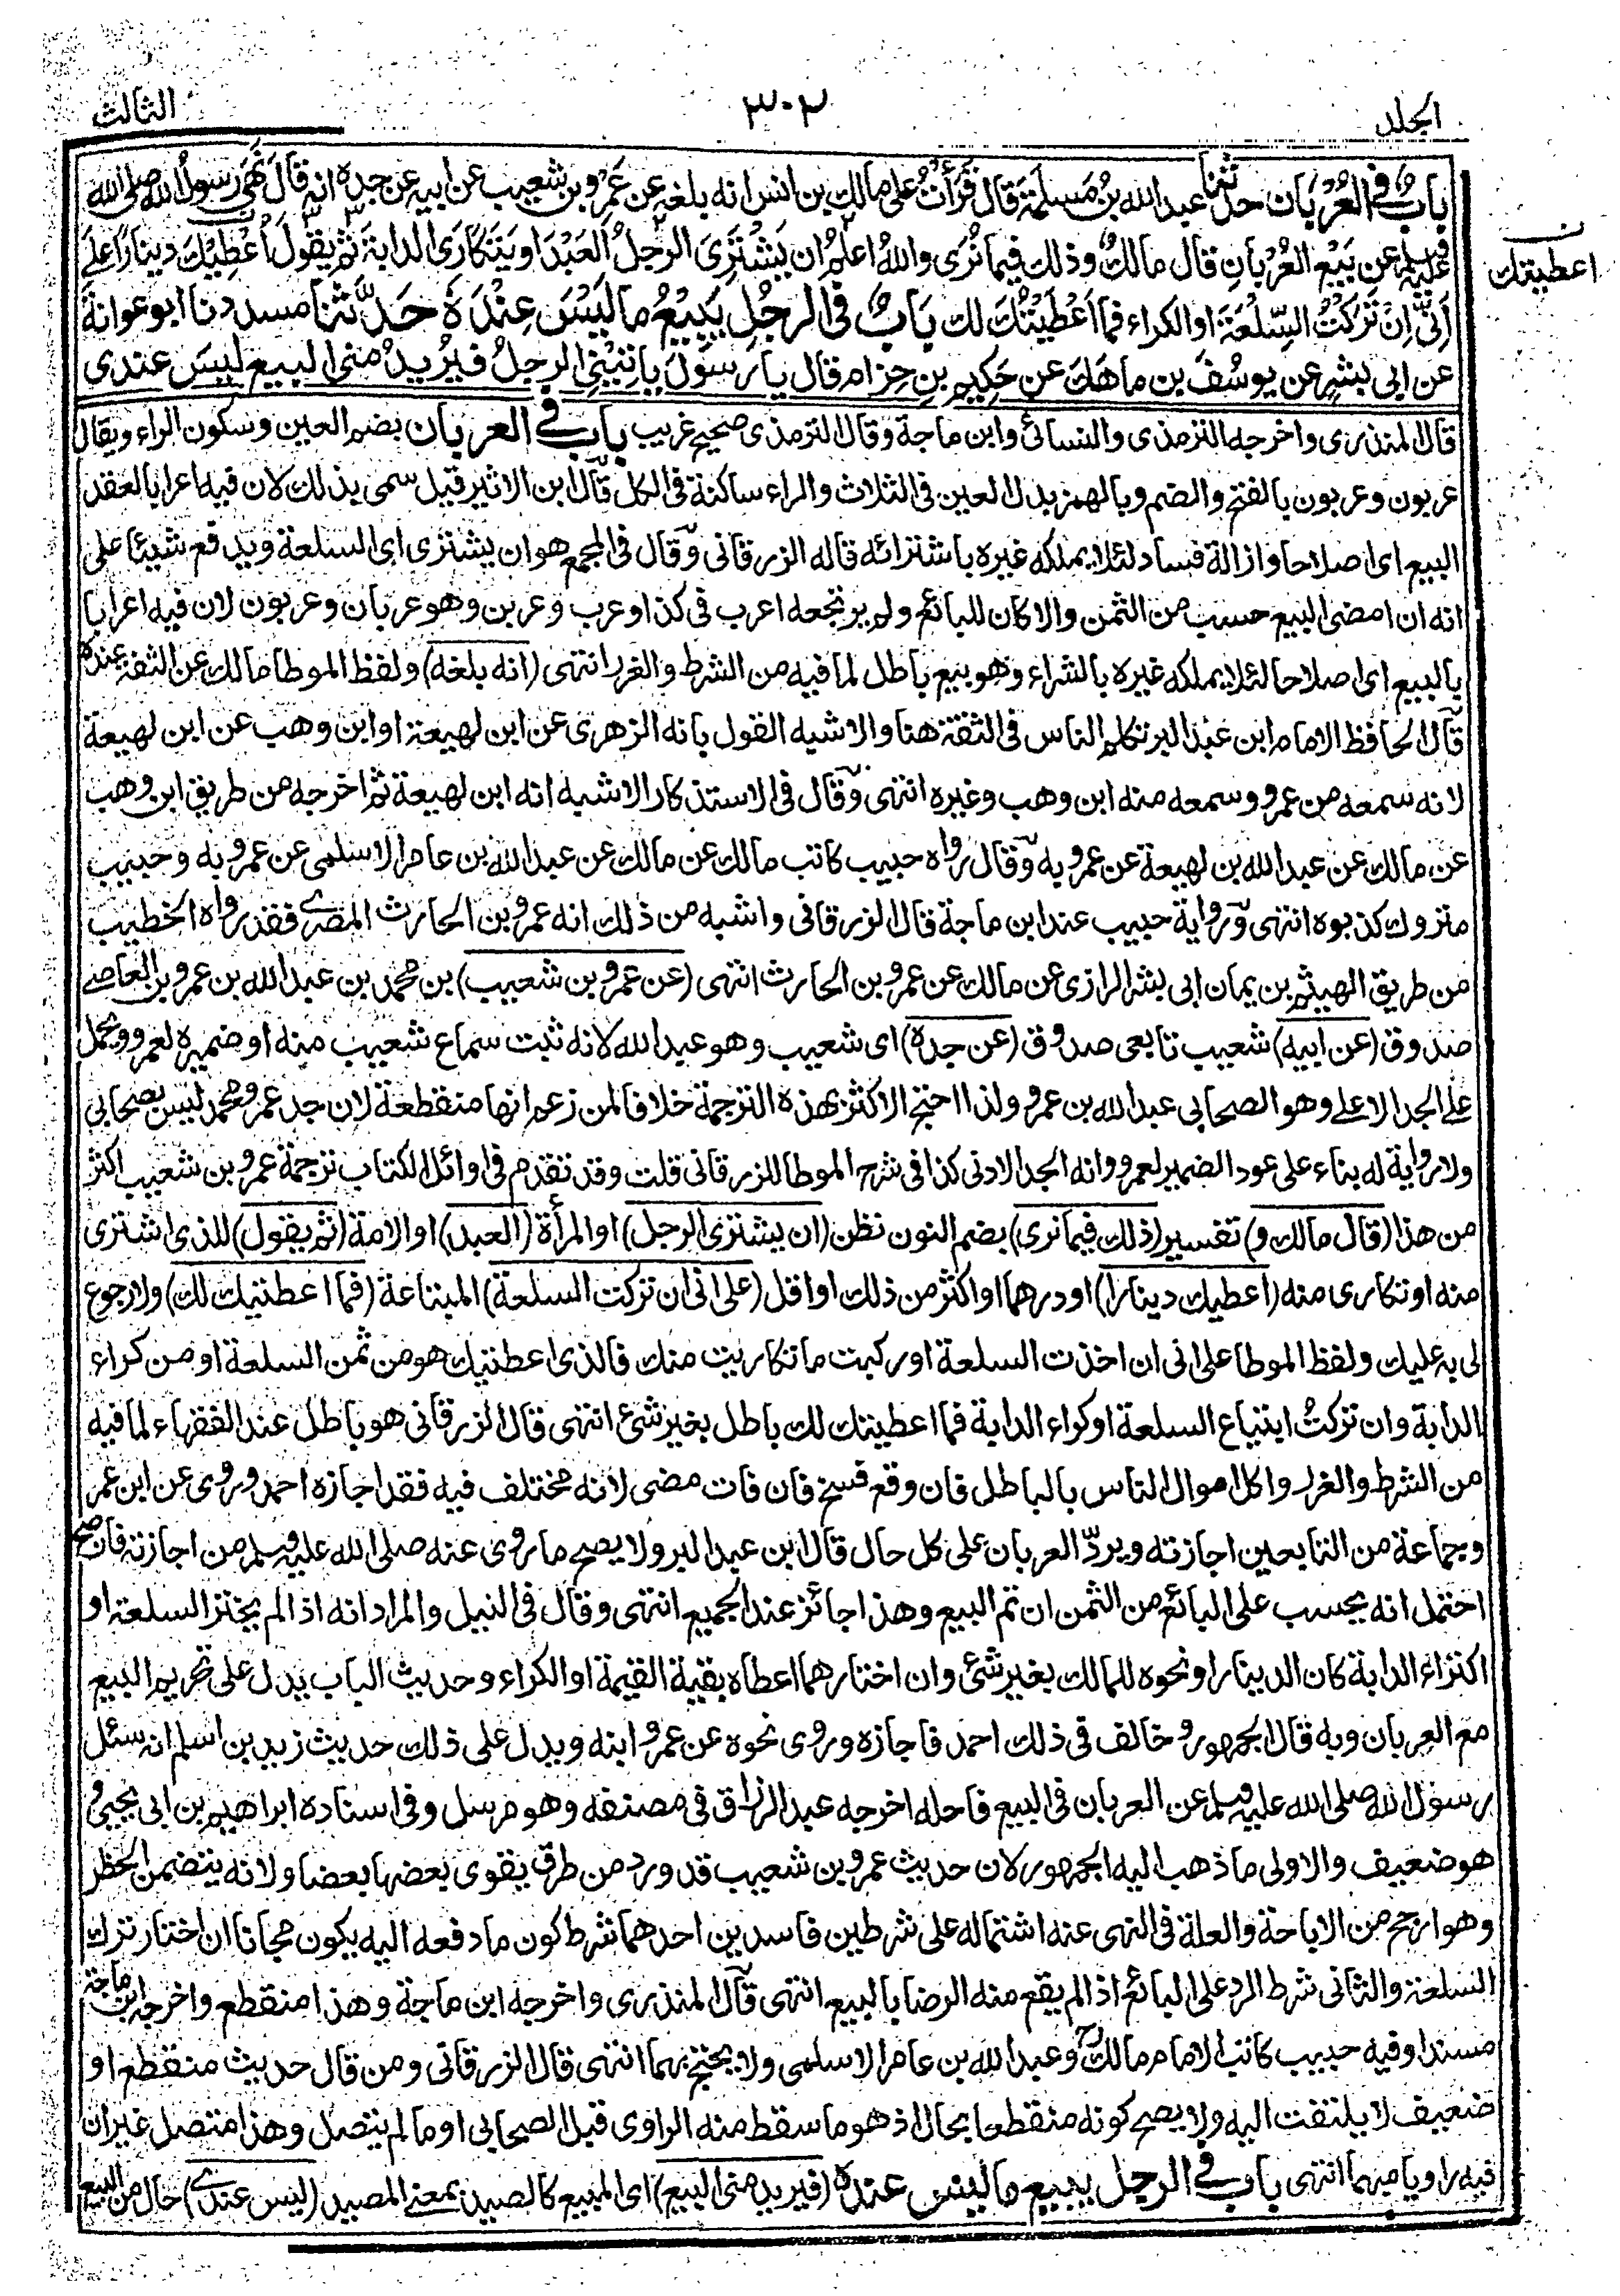 المجلد
٣٠٢
الثالث
باب في العُرْبَان حدثنا عبد الله بن مَسلمة قال قرأتُ على مالك بن انس انه بلغه عن عَمرو بن شعيب عن ابيه عن جده انه قال نَهَى رسولُ الله صلى الله
عليه وسلم عن بَيْعِ العُرْبانِ قال مالكٌ وذلك فيما نُرَى واللهُ اعلمُ ان يَشْتَرِىَ الرجلُ العَبْدَ او يَتَكَارَى الدابةَ ثم يقولَ اُعْطِيْكَ دينارًا على
اَنِّى اِنْ تَرَكْتُ السِّلْعَةَ او الكراء فما اَعْطَيْتُكَ لك بَابٌ فى الرجُلِ يَبِيْعُ ما لَيْسَ عِنْدَهُ حَدَّثنا مسدد نا ابو عوانة
عن ابى بشرٍ عن يوسُفَ بن ماهَكَ عن حَكِيمِ بنِ حِزام قال يا رسولَ يأتِيْنِى الرجلُ فيُرِيدُ منى البيع ليسَ عندى
اعطيتك
قال المنذرى واخرجه الترمذى والنسائى وابن ماجة وقال الترمذى صحيح غريب باب في العربان بضم العين وسكون الراء ويقال
عربون وعربون بالفتح والضم وبالهمز بدل العين فى الثلاث والراء ساكنة فى الكل قال ابن الاثير قيل سمى بذلك لان فيه اعرابا لعقد
البيع اى اصلاحا وازالة فساد لئلا يملكه غيره باشترائه قاله الزرقانى وقال فى المجمع هو ان يشترى اى السلعة ويدفع شيئا على
انه ان امضى البيع حسب من الثمن والا كان للبائع ولم يرتجعه اعرب فى كذا وعرب وعربن وهو عربان وعربون لان فيه اعرابا
بالبيع اى اصلاحا لئلا يملكه غيره بالشراء وهو بيع باطل لما فيه من الشرط والغرر انتهى (انه بلغه) ولفظ الموطا مالك عن الثقة عنده
قال الحافظ الامام ابن عبد البر تكلم الناس فى الثقة هنا والاشبه القول بانه الزهرى عن ابن لهيعة او ابن وهب عن ابن لهيعة
لانه سمعه من عمرو وسمعه منه ابن وهب وغيره انتهى وقال فى الاستذكار الاشبه انه ابن لهيعة ثم اخرجه من طريق ابن وهب
عن مالك عن عبد الله بن لهيعة عن عمرو به وقال رواه حبيب كاتب مالك عن مالك عن عبد الله بن عامر الاسلمى عن عمرو به وحبيب
متروك كذبوه انتهى ورواية حبيب عند ابن ماجة قال الزرقانى واشبه من ذلك انه عمرو بن الحارث المصرے فقد رواه الخطيب
من طريق الهيثم بن يمان ابى بشر الرازى عن مالك عن عمرو بن الحارث انتهى (عن عمرو بن شعيب) بن محمد بن عبد الله بن عمرو بن العاصے
صدوق (عن ابيه) شعيب تابعى صدوق (عن جده) اى شعيب وهو عبد الله لانه ثبت سماع شعيب منه او ضميره لعمرو ويحمل
على الجد الاعلے وهو الصحابى عبد الله بن عمرو ولذا احتج الاكثر بهذه الترجمة خلافا لمن زعم انها منقطعة لان جد عمرو محمد ليس بصحابي
ولا رواية له بناء على عود الضمير لعمرو وانه الجد الادنى كذا فى شرح الموطا للزرقانى قلت وقد تقدم فى اوائل الكتاب ترجمة عمرو بن شعيب اكثر
من هذا (قال مالك و) تفسير (ذلك فيما نرى) بضم النون نظن (ان يشترى الرجل) او المرأة (العبد) او الامة (ثم يقول) للذى اشترى
منه او تكارى منه (اعطيك دينارا) او درهما او اكثر من ذلك او اقل (على انى ان تركت السلعة) المبتاعة (فما اعطتيك لك) ولا رجوع
لى به عليك ولفظ الموطا على انى ان اخذت السلعة او ركبت ما تكاريت منك فالذى اعطتيك هو من ثمن السلعة او من كراء
الدابة وان تركتُ ابتياع السلعة او كراء الدابة فما اعطيتك لك باطل بغير شئ انتهى قال الزرقانى هو باطل عند الفقهاء لما فيه
من الشرط والغرر واكل اموال الناس بالباطل فان وقع فسخ فان فات مضى لانه مختلف فيه فقد اجازه احمد وروى عن ابن عمر
وجماعة من التابعين اجازته ويردّ العربان على كل حال قال ابن عبد البر ولا يصح ما روى عنه صلى الله عليه وسلم من اجازته فان صح
احتمل انه يحسب على البائع من الثمن ان تم البيع وهذا جائز عند الجميع انتهى وقال فى النيل والمراد انه اذا لم يختر السلعة او
اكتراء الدابة كان الدينار او نحوه للمالك بغير شئ وان اختارهما اعطاه بقية القيمة او الكراء وحديث الباب يدل على تحريم البيع
مع العربان وبه قال الجمهور وخالف فى ذلك احمد فاجازه وروى نحوه عن عمرو ابنه ويدل على ذلك حديث زيد بن اسلم انه سئل
رسول الله صلى الله عليه وسلم عن العربان فى البيع فاحله اخرجه عبد الرزاق فى مصنفه وهو مرسل وفى اسناده ابراهيم بن ابى يحيى و
هو ضعيف والاولى ما ذهب اليه الجمهور لان حديث عمرو بن شعيب قد ورد من طرق يقوى بعضها بعضا ولانه يتضمن الحظر
وهو ارجح من الاباحة والعلة فى النهى عنه اشتماله على شرطين فاسدين احدهما شرط كون ما دفعه اليه يكون مجانا ان اختار ترك
السلعة والثانى شرط الرد على البائع اذا لم يقع منه الرضا بالبيع انتهى قال المنذرى واخرجه ابن ماجة وهذا منقطع واخرجه ابن ماجة
مسندا وفيه حبيب كاتب الامام مالك وعبد الله بن عامر الاسلمى ولا يحتج بهما انتهى قال الزرقانى ومن قال حديث منقطع او
ضعيف لا يلتفت اليه ولا يصح كونه منقطعا بحال اذ هو ما سقط منه الراوى قبل الصحابى او ما لم يتصل وهذا متصل غير ان
فيه راويا مبهما انتهى باب في الرجل يبيع ما ليس عنده (فيريد منى البيع) اى المبيع كالصيد بمعنے المصيد (ليس عندے) حال من البيع